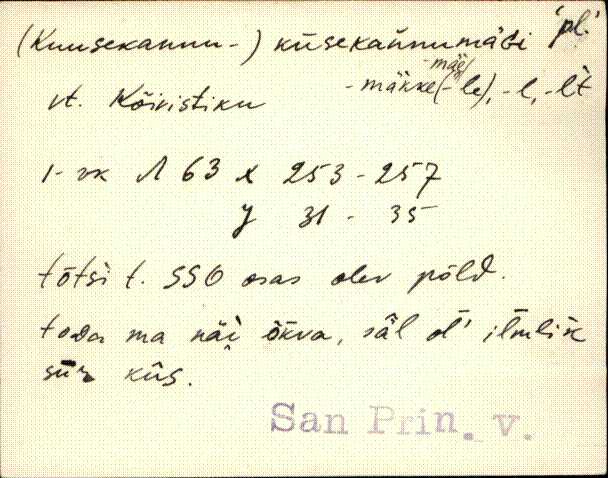 (Kuusekannu-) kūsekannumägi 'pl.'
-mäe/
vt. Kõivistiku -mäkke(-le), -l, -lt
1-vk Λ 63 x 253-257
y 31 - 35
tõtsi t. SSO osas olev põld.
toda ma näi õkva, säl ol' ilmlik
sūr kūs.
San Prin. v.